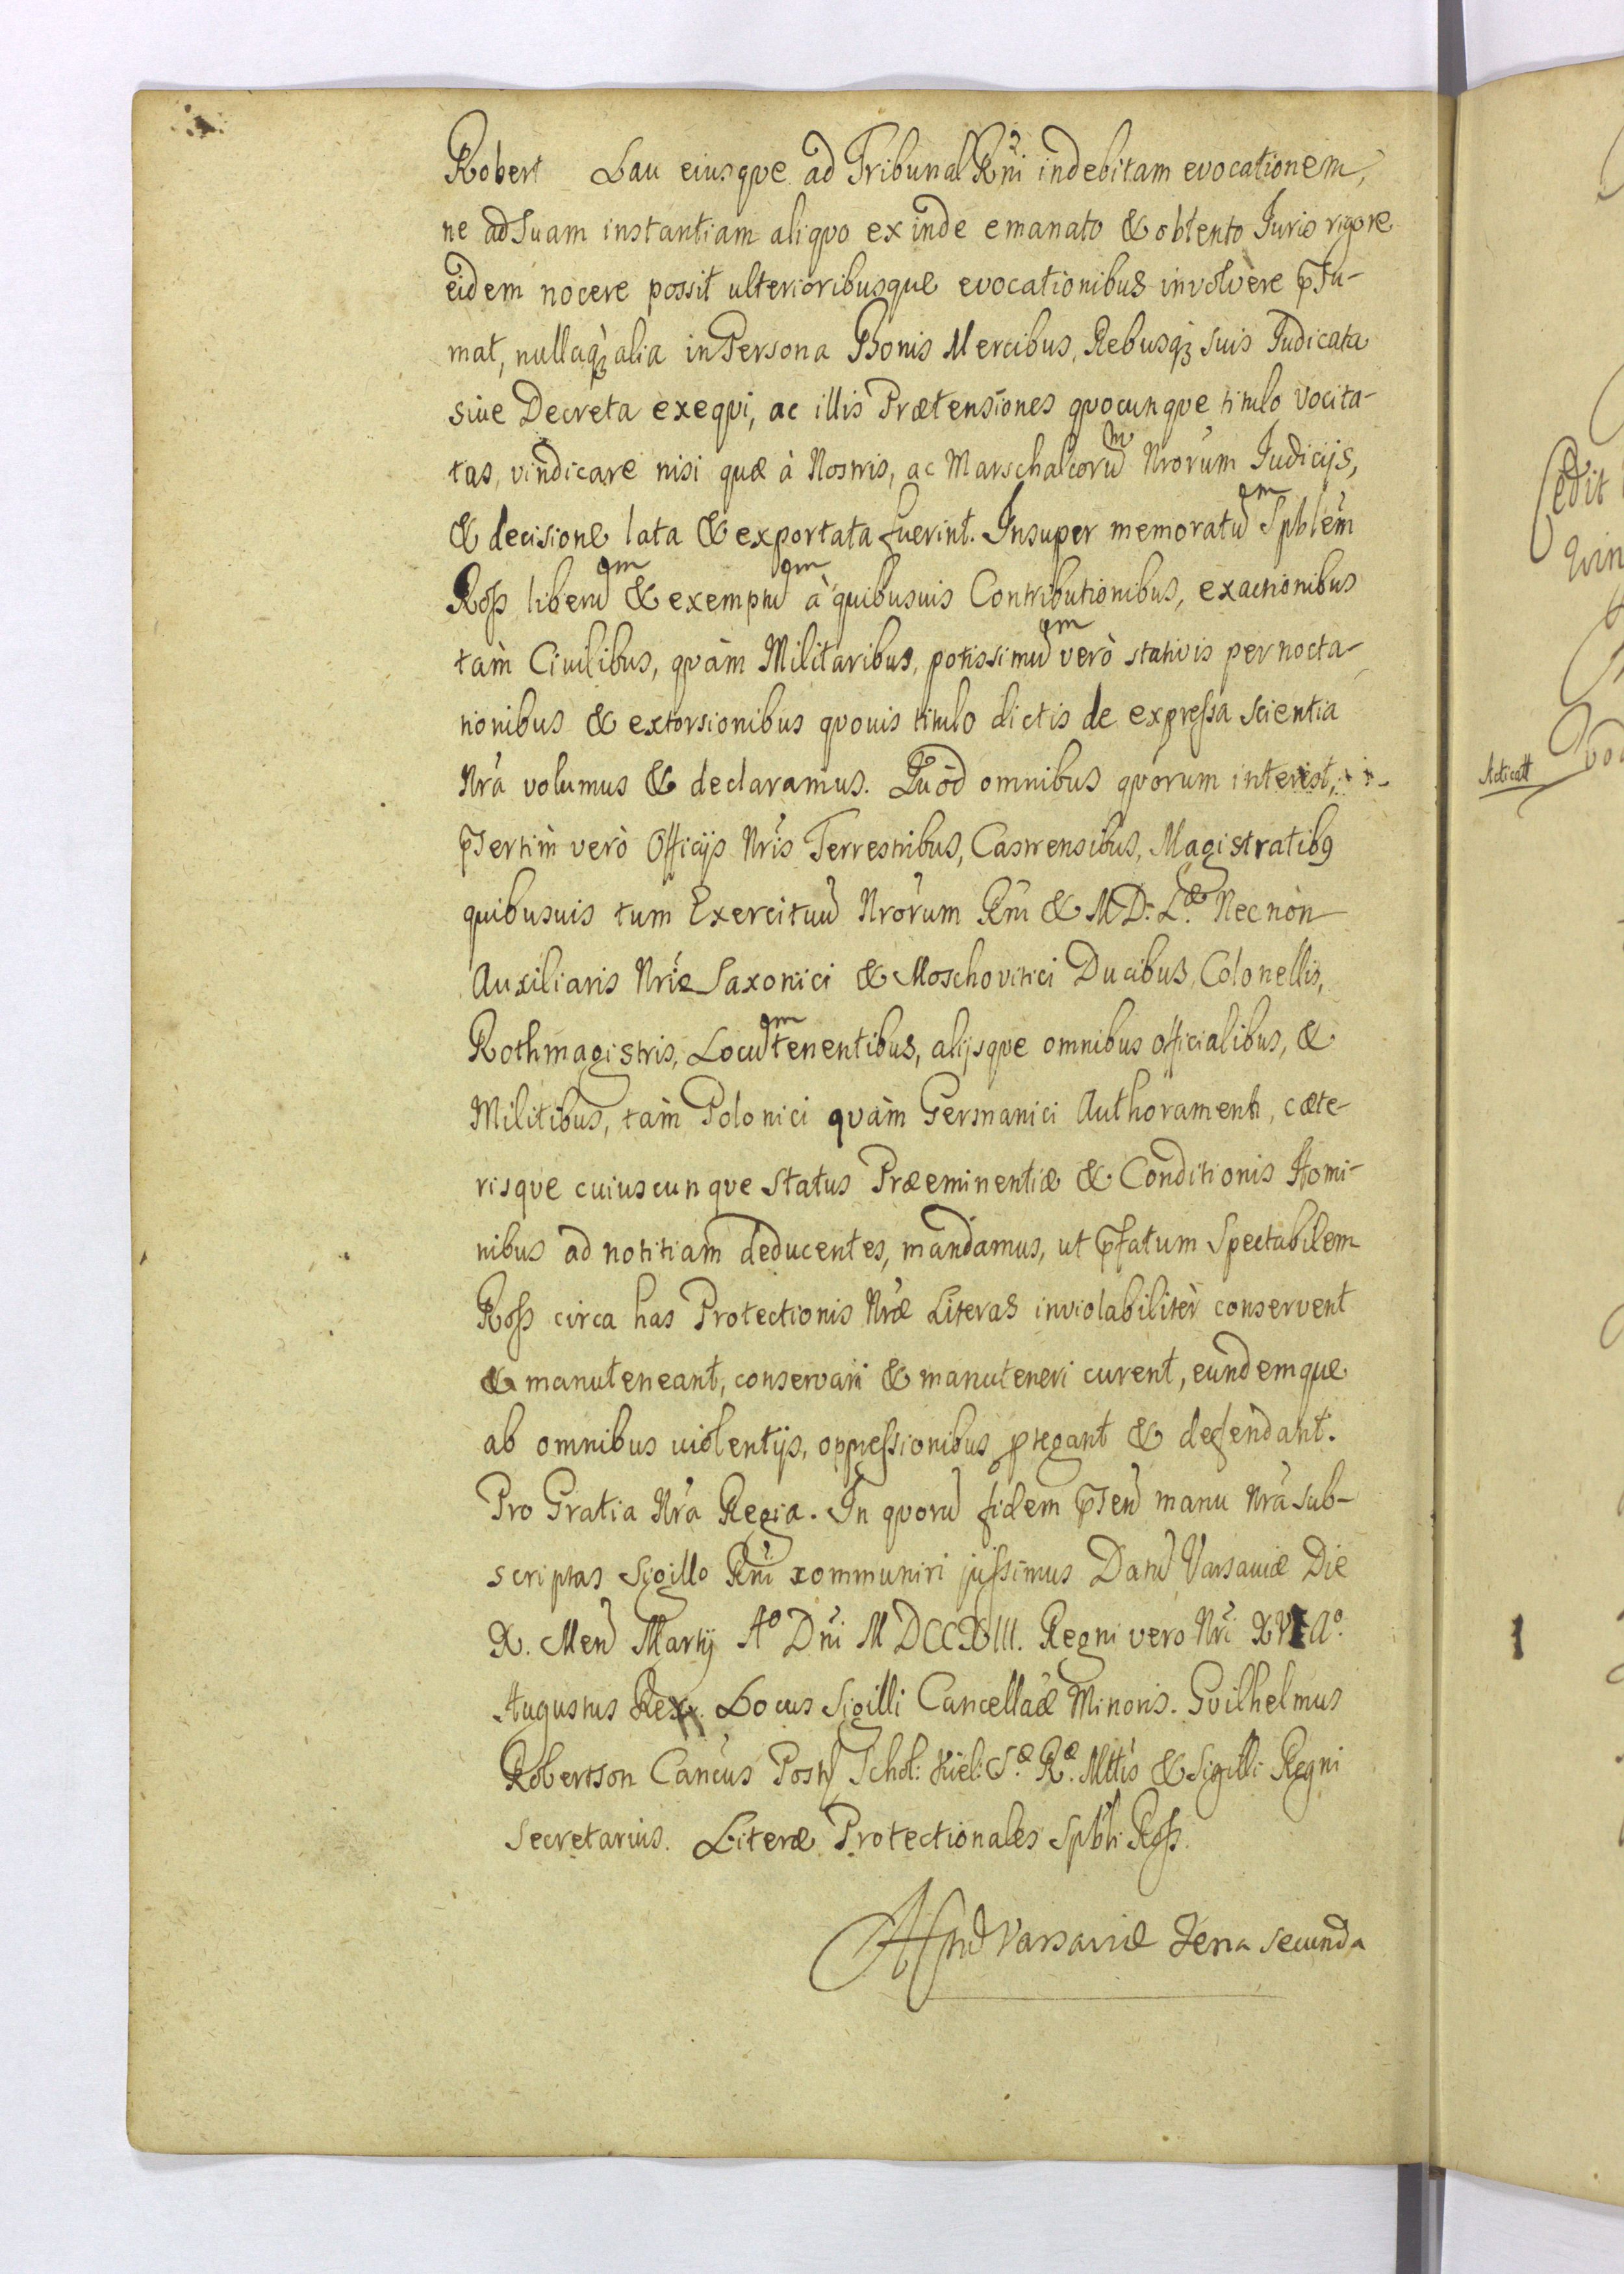 Robert Lau eiusque ad Tribunal Rni indebitam evocationem,
ne ad Suam instantiam aliquo exinde emanato & obtento Juris rigore
eidem nocere possit ulterioribusque evocationibus involvere p̄su-
mat, nullaq; alia in Persona Bonis Mercibus, Rebusq; suis Judicata
siue Decreta exequi, ac illis Prætensiones quocunque titulo vocita-
tas, vindicare nisi quæ à Nostris, ac Marschalcorum Nrorum Judicijs,
& decisione lata & exportata fuerint. Insuper memoratum Spblem
Ross liberum & exemptum à quibusuis Contributionibus, exactionibus
tàm Ciuilibus, quàm Militaribus, potissimum verò stativis pernocta-
tionibus & extorsionibus quouis titulo dictis de expressa scientia
Nra volumus & declaramus. Quòd omnibus quorum interest,
p̄sertim verò Officijs Nris Terrestribus, Castrensibus, Magistratib9
quibusuis tum Exercituū Nrorum Rni & M D: L.æ Necnòn
Auxiliaris Nri Saxonici & Moschovitici Ducibus, Colonellis,
Rothmagistris, Locumtenentibus, alijsque omnibus officialibus, &
Militibus, tàm Polonici quàm Germanici Authoramenti, cæte-
risque cuiuscunque Status Præeminentiæ & Conditionis Homi-
nibus ad notitiam deducentes, mandamus, ut p̄fatum Spectabilem
Ross circa has Protectionis Nræ Literas inviolabilitèr conservent
& manuteneant, conservari & manuteneri curent, eundemque
ab omnibus uiolentijs, oppressionibus ptegant & defendant.
Pro Gratia Nra Regia. In quorū fidem p̄sen̄ manu Nra sub-
scriptas Sigillo Rni communiri jussimus Datū Varsaviæ Die
X. Men̄ Martij Aº Dni M DCCXIII. Regni vero Nri XVI Aº.
Augustus Rex. Locus Sigilli Cancellæ Minoris. Guilhelmus
Robertson Cancus Schol: Kiel: S.æ R.æ Mttis & Sigilli Regni
Secretarius. Literæ Protectionales Spbli Ross.
Varsaviæ Feria secunda
Acticatt